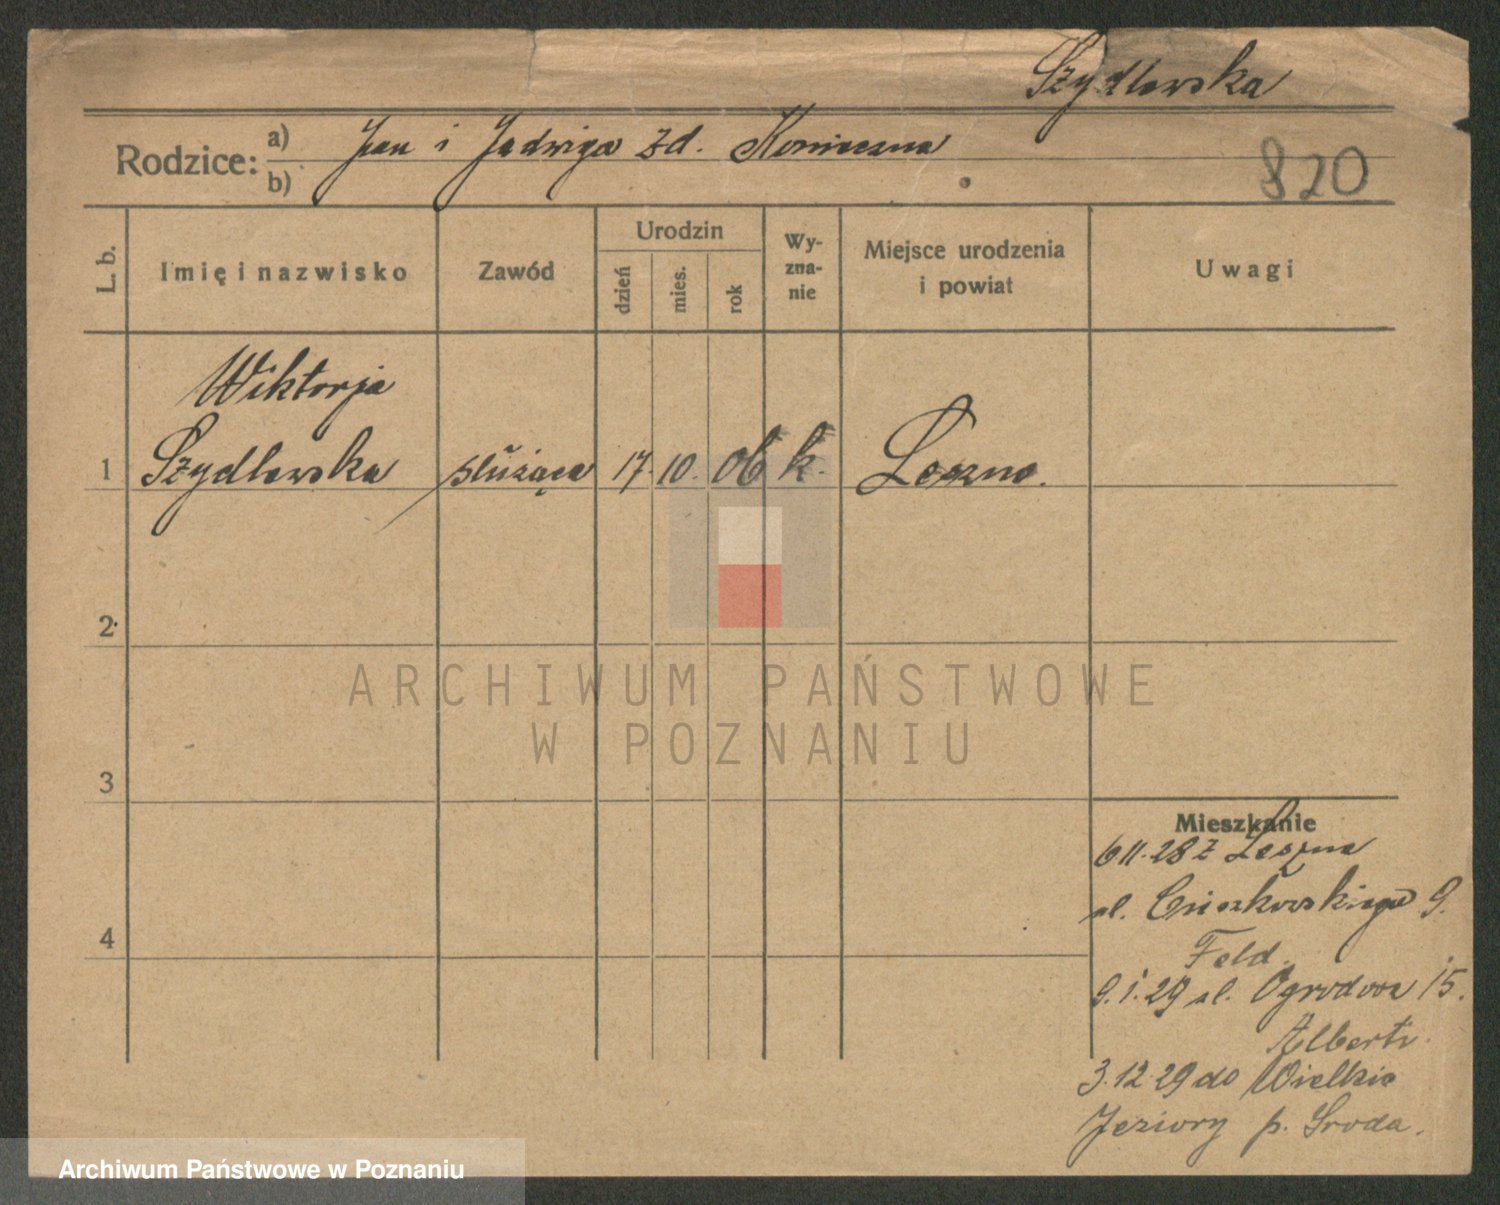 Szydlowska
Rodzice: a) Jan i Jadwiga zd. Konieczna
b)
820
L. b.
Imię i nazwisko
Zawód
Urodzin
dzień
mies.
rok
Wy-
zna-
nie
Miejsce urodzenia
i powiat
Uwagi
Wiktorja
1 Szydlowska służąca 17. 10. 06 k. Leszno.
2
ARCHIWUM PAŃSTWOWE
W POZNANIU
3
Mieszkanie
6 11. 28 z Leszna
ul. 9.
4
Feld.
9. 1. 29 ul. Ogrodowa 15.
Alberti.
3. 12 29 do Wielkie
Jeziory p. Sroda.
Archiwum Państwowe w Poznaniu